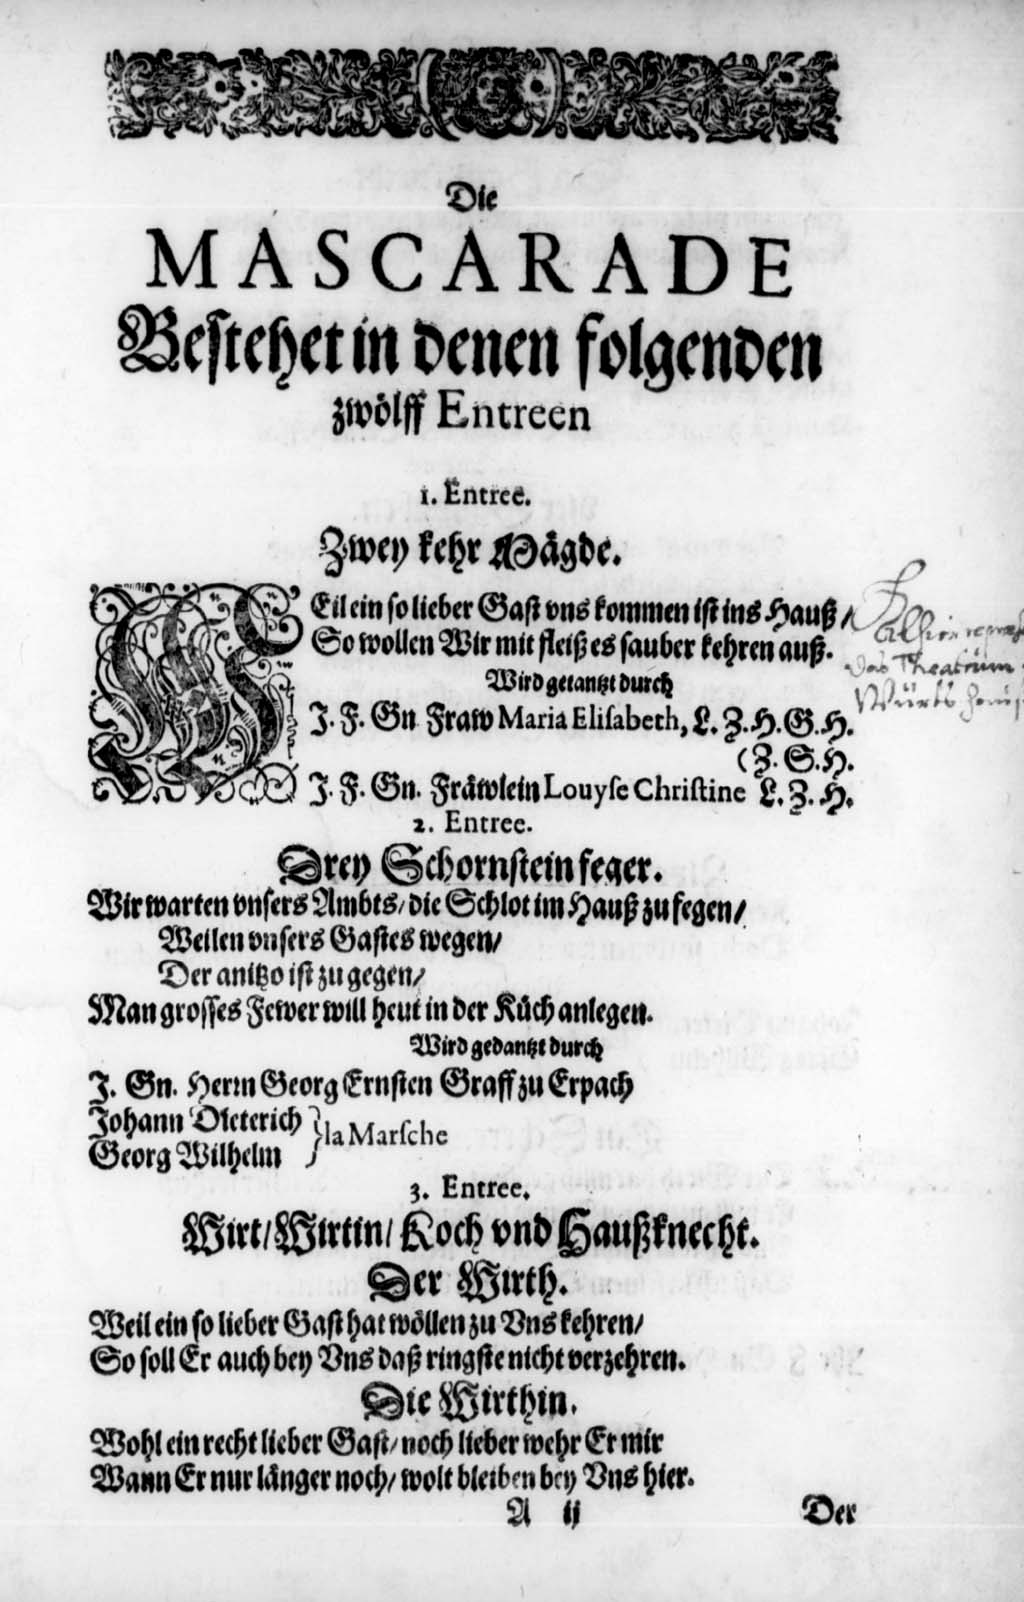 Die
MASCARADE
Bestehet in denen folgenden
zwölff Entreen
1. Entree.
Zwey kehr Mägde.
WEil ein so lieber Gast vns kommen ist ins Hauß /
So wollen Wir mit fleiß es sauber kehren auß.
Wird getantzt durch
J. F. Gn Fraw Maria Elisabeth, L. Z. H. G. H.
(Z. S. H.
J. F. Gn. Fräwlein Louyse Christine L. Z. H.
das Theatrum
Würts
2. Entree.
Drey Schornstein feger.
Wir warten vnsers Ambts / die Schlot im Hauß zu fegen /
Weilen vnsers Gastes wegen /
Der anitzo ist zu gegen /
Man grosses Fewer will heut in der Küch anlegen.
Wird gedantzt durch
J. Gn. Herrn Georg Ernsten Graff zu Erpach
Johann Dieterich } la Marsche
Georg Wilhelm
3. Entree.
Wirt / Wirtin / Koch vnd Haußknecht.
Der Wirth.
Weil ein so lieber Gast hat wöllen zu Vns kehren /
So soll Er auch bey Vns daß ringste nicht verzehren.
Die Wirthin.
Wohl ein recht lieber Gast / noch lieber wehr Er mir
Wann Er nur länger noch / wolt bleiben bey Vns hier.
A ij Der